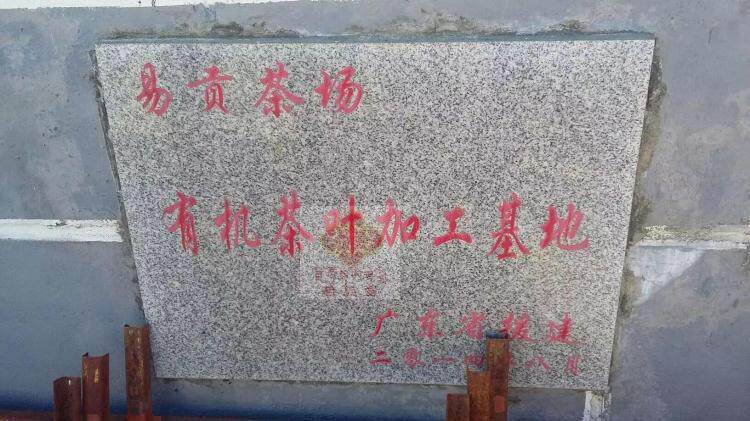 易贡茶场
有机茶叶加工基地
广东省援建
二零一四年八月